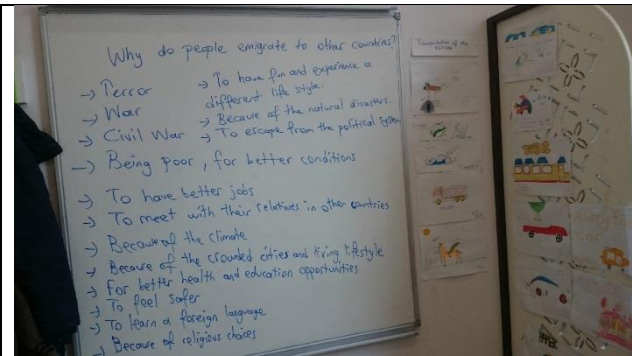 Why do people emigrate to other countries?
→ Terror
→ War
→ Civil War
→ To have fun and experience a
different life style.
→ Because of the natural disasters.
→ To escape from the political system
→ Being poor, for better conditions
→ To have better jobs
→ To meet with their relatives in other countries
→ Because of the climate
→ Because of the crowded cities and tiring lifestyle
→ For better health and education opportunities
→ To feel safer
→ To learn a foreign language
→ Because of religious choices
of the